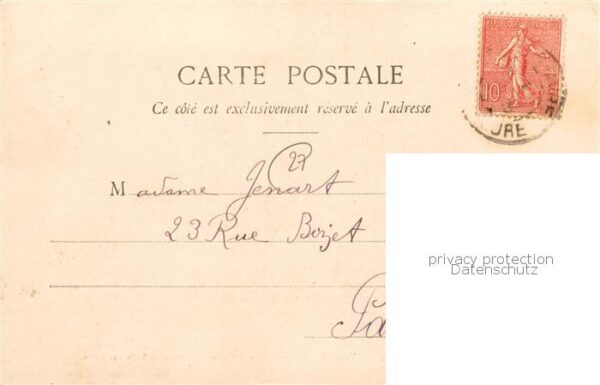 CARTE POSTALE
Ce côté est exclusivement réservé à l'adresse
10
27
Madame Jenart
23 Rue Boizet
Pa
privacy protection
Datenschutz